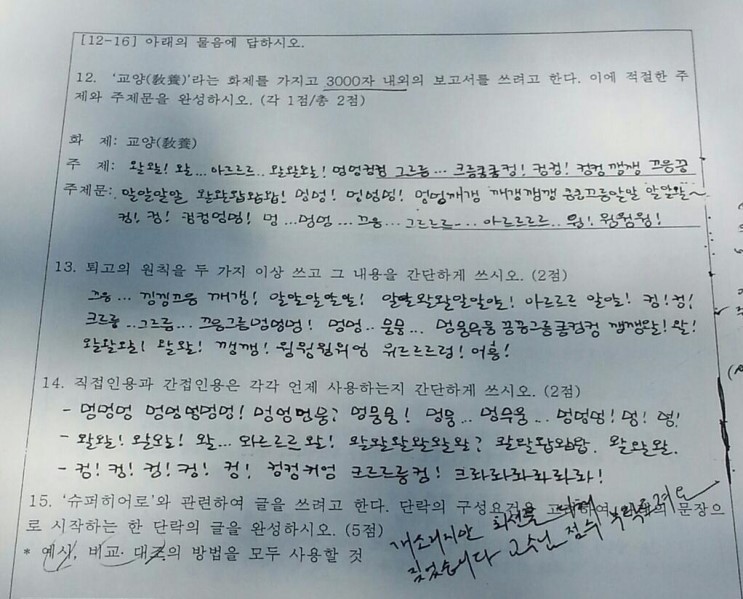 [12-16] 아래의 물음에 답하시오.
12. '교양(敎養)'라는 화제를 가지고 3000자 내외의 보고서를 쓰려고 한다. 이에 적절한 주
제와 주제문을 완성하시오. (각 1점/총 2점)
화 제: 교양(敎養)
주 제: 왈왈! 왈... 아르르르.. 왈왈왈! 멍멍컹컹 그르릉... 크릉쿵쿵컹! 컹컹! 컹컹 깽깽 끄응끙
주제문: 알알알알 왈왈왈왈왈! 멍멍! 멍멍멍! 멍멍깨갱 깨갱깽깽 킁킁끄응알알 알알왈~
컹! 컹! 컹컹멍멍! 멍...멍멍... 끄응...그르르르...- 아르르르르.. 웡! 웡웡웡!
13. 퇴고의 원칙을 두 가지 이상 쓰고 그 내용을 간단하게 쓰시오. (2점)
끄응... 낑낑끄응 깨갱! 알알알알알! 알알왈왈알알알! 아르르르 알알! 컹!컹!
크르릉..그르릉... 끄응그릉멍멍멍! 멍멍..
왈왈왈! 왈왈! 깽깽! 윙웡웡워엉 워르르르렁! 어흥!
14. 직접인용과 간접인용은 각각 언제 사용하는지 간단하게 쓰시오. (2점)
- 멍멍멍 멍멍멍멍멍! 멍멍멍뭉? 멍뭉뭉! 멍뭉... 멍수웅... 멍멍멍! 멍! 멍!
- 왈왈! 왈왈왈! 왈... 와르르르 왈! 왈왈왈왈왈왈왈? 왈왈왈왈왈. 왈왈왈.
- 컹! 컹! 컹! 컹! 컹! 컹컹커엉 크르르릉컹! 크롸롸롸롸롸롸!
15. '슈퍼히어로'와 관련하여 글을 쓰려고 한다. 단락의 구성요건을 문장으
로 시작하는 한 단락의 글을 완성하시오. (5점)
* 예시, 비교·대조의 방법을 모두 사용할 것
개소리지만 최선을 다해
짖었습니다 교수님 점수 부탁드려요